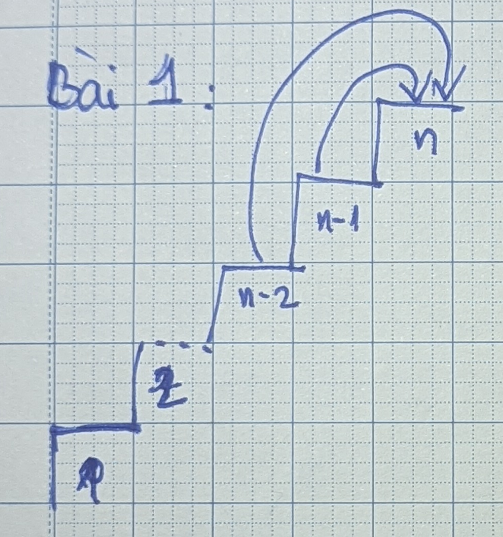 Bài 1:
n
n-1
n-2
2
1